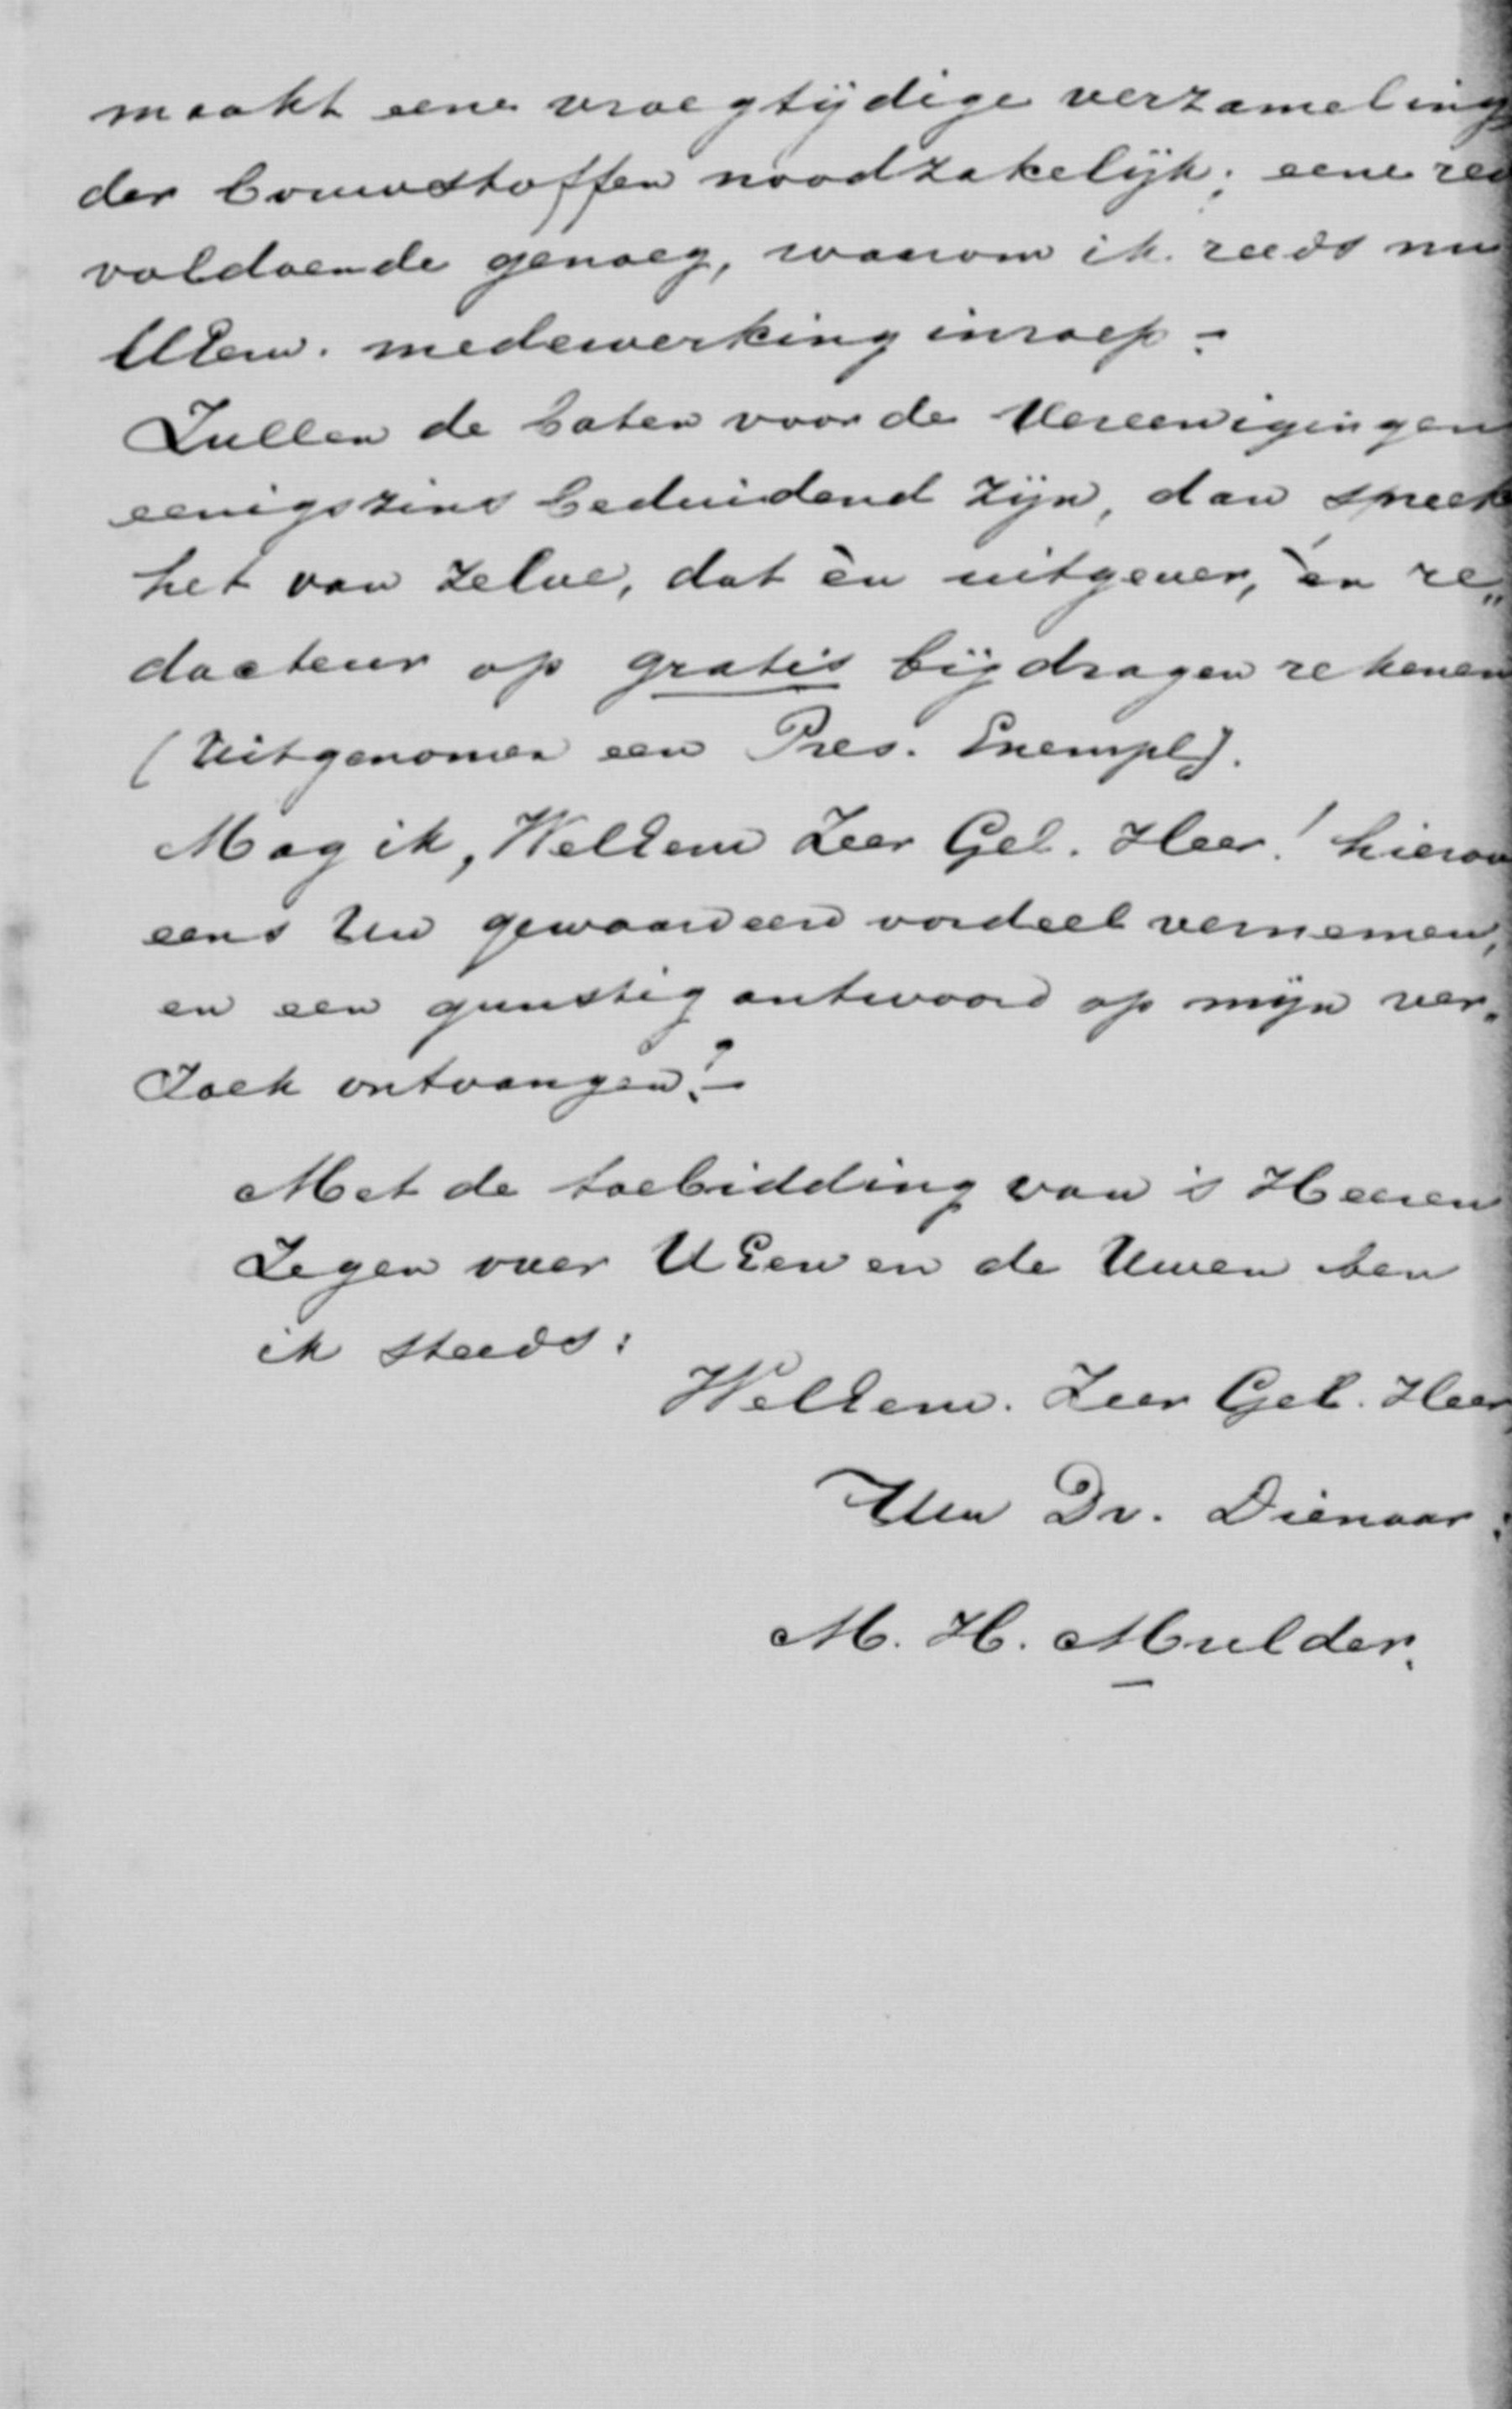 maakt eene vroegtijdige verzameling
der bouwstoffen noodzakelijk; eene red
voldoende genoeg, waarom ik reeds nu
UEerw. medewerking inroep. -
Zullen de baten voor de Vereenigingen
eenigszins beduidend zijn, dan spreekt
het van zelve, dat èn uitgever, èn re„
dacteur op gratis bijdragen rekenen
(Uitgenomen een Pres. Exempl).
Mag ik, WelEerw Zeer Gel. Heer! hierov
eens Uw gewaardeerd oordeel vernemen,
en een gunstig antwoord op mijn ver„
zoek ontvangen? -
Met de toebidding van 's Heeren
Zegen over UEerw en de Uwen ben
ik steeds:
WelEerw. Zeer Gel. Heer,
Uw Dv. Dienaar:
M. H. Mulder.